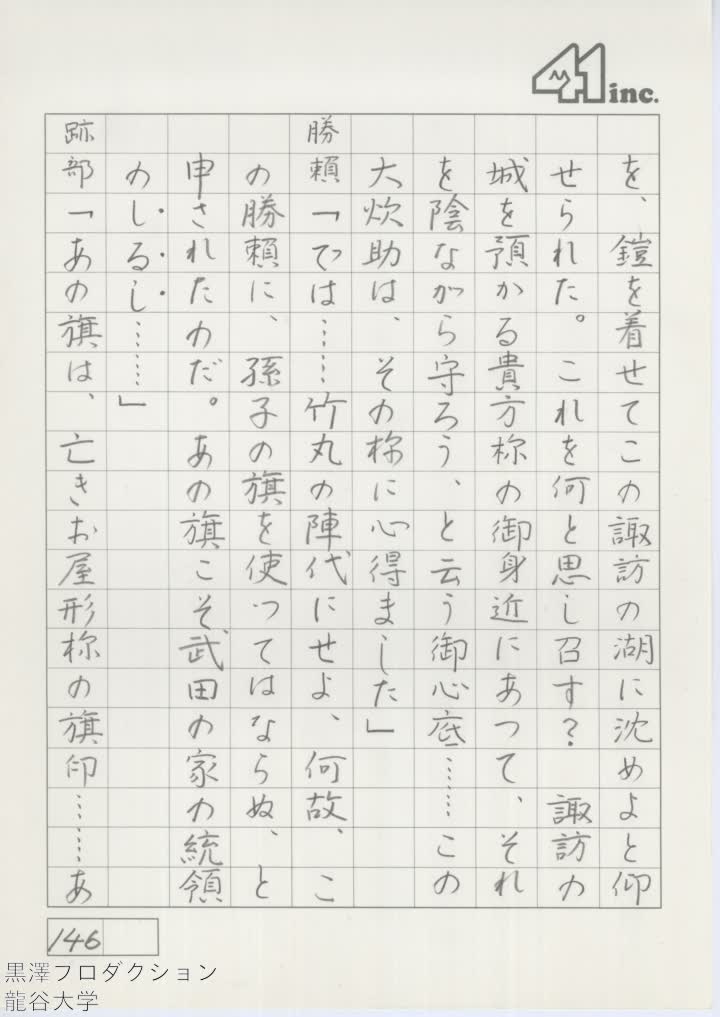 41 inc.
を、鎧を着せてこの諏訪の湖に沈めよと仰
せられた。これを何と思し召す？　諏訪の
城を預かる貴方様の御身近にあつて、それ
を陰ながら守ろう、と云う御心底……この
大炊助は、その様に心得ました」
勝頼「では……竹丸の陣代にせよ、何故、こ
の勝頼に、孫子の旗を使つてはならぬ、と
申されたのだ。あの旗こそ武田の家の統領
のしるし……」
跡部「あの旗は、亡きお屋形様の旗印……あ
146
黒澤プロダクション
龍谷大学